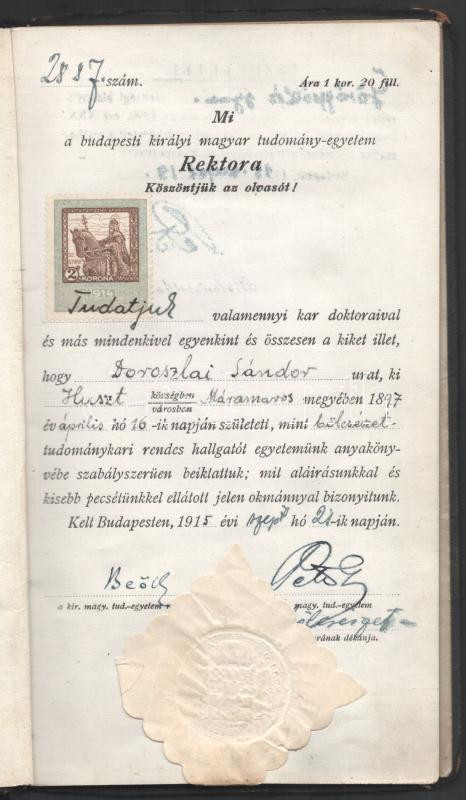 2887. szám. Ára 1 kor. 20 fill.
Mi
a budapesti királyi magyar tudomány-egyetem
Rektora
Köszöntjük az olvasót!
2 KORONA
1914
Tudatjuk valamennyi kar doktoraival
és más mindenkivel egyenkint és összesen a kiket illet,
hogy Doroszlai Sándor urat, ki
Huszt községben városban Máramaros megyében 1897
év április hó 16-ik napján született, mint bölcsészet-
tudománykari rendes hallgatót egyetemünk anyaköny-
vébe szabályszerüen beiktattuk; mit aláirásunkkal és
kisebb pecsétünkkel ellátott jelen okmánnyal bizonyitunk.
Kelt Budapesten, 1915 évi szept hó 21-ik napján.
Beöthy
a kir. magy. tud.-egyetem r magy. tud.-egyetem
arának dékánja.